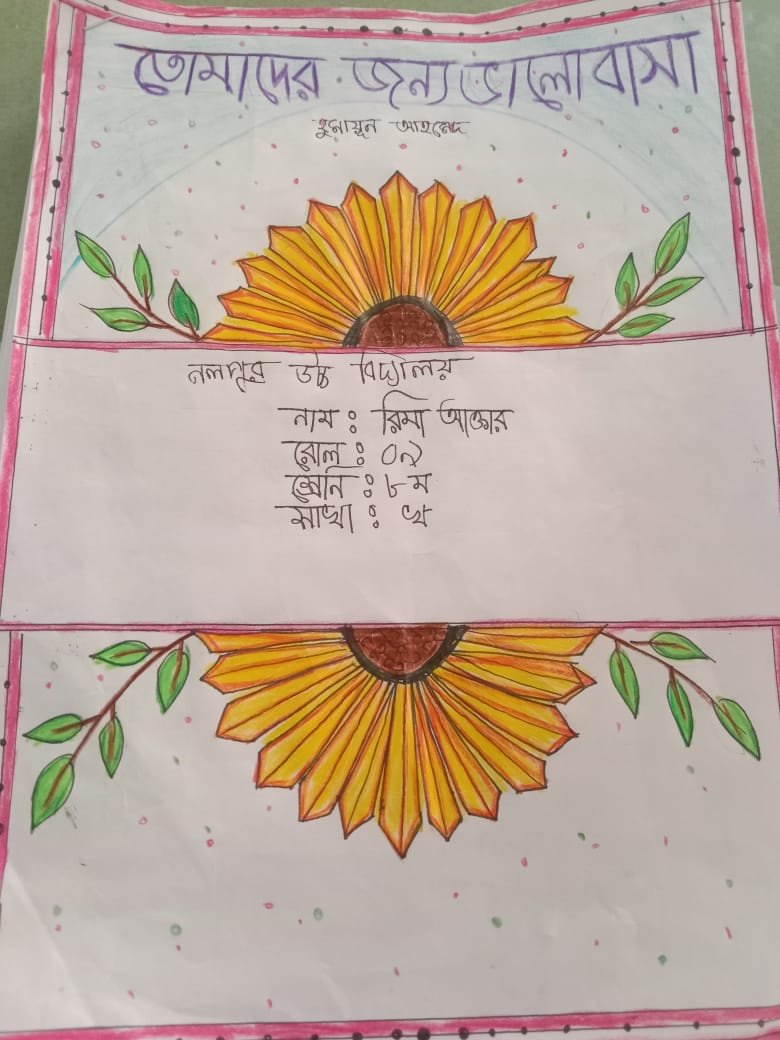 তোমাদের জন্য ভালোবাসা
হুমায়ূন আহমেদ
নলাপুর উচ্চ বিদ্যালয়
নাম : রিমা আক্তার
রোল : ০৯
শ্রেনি : ৮ম
শাখা : খ